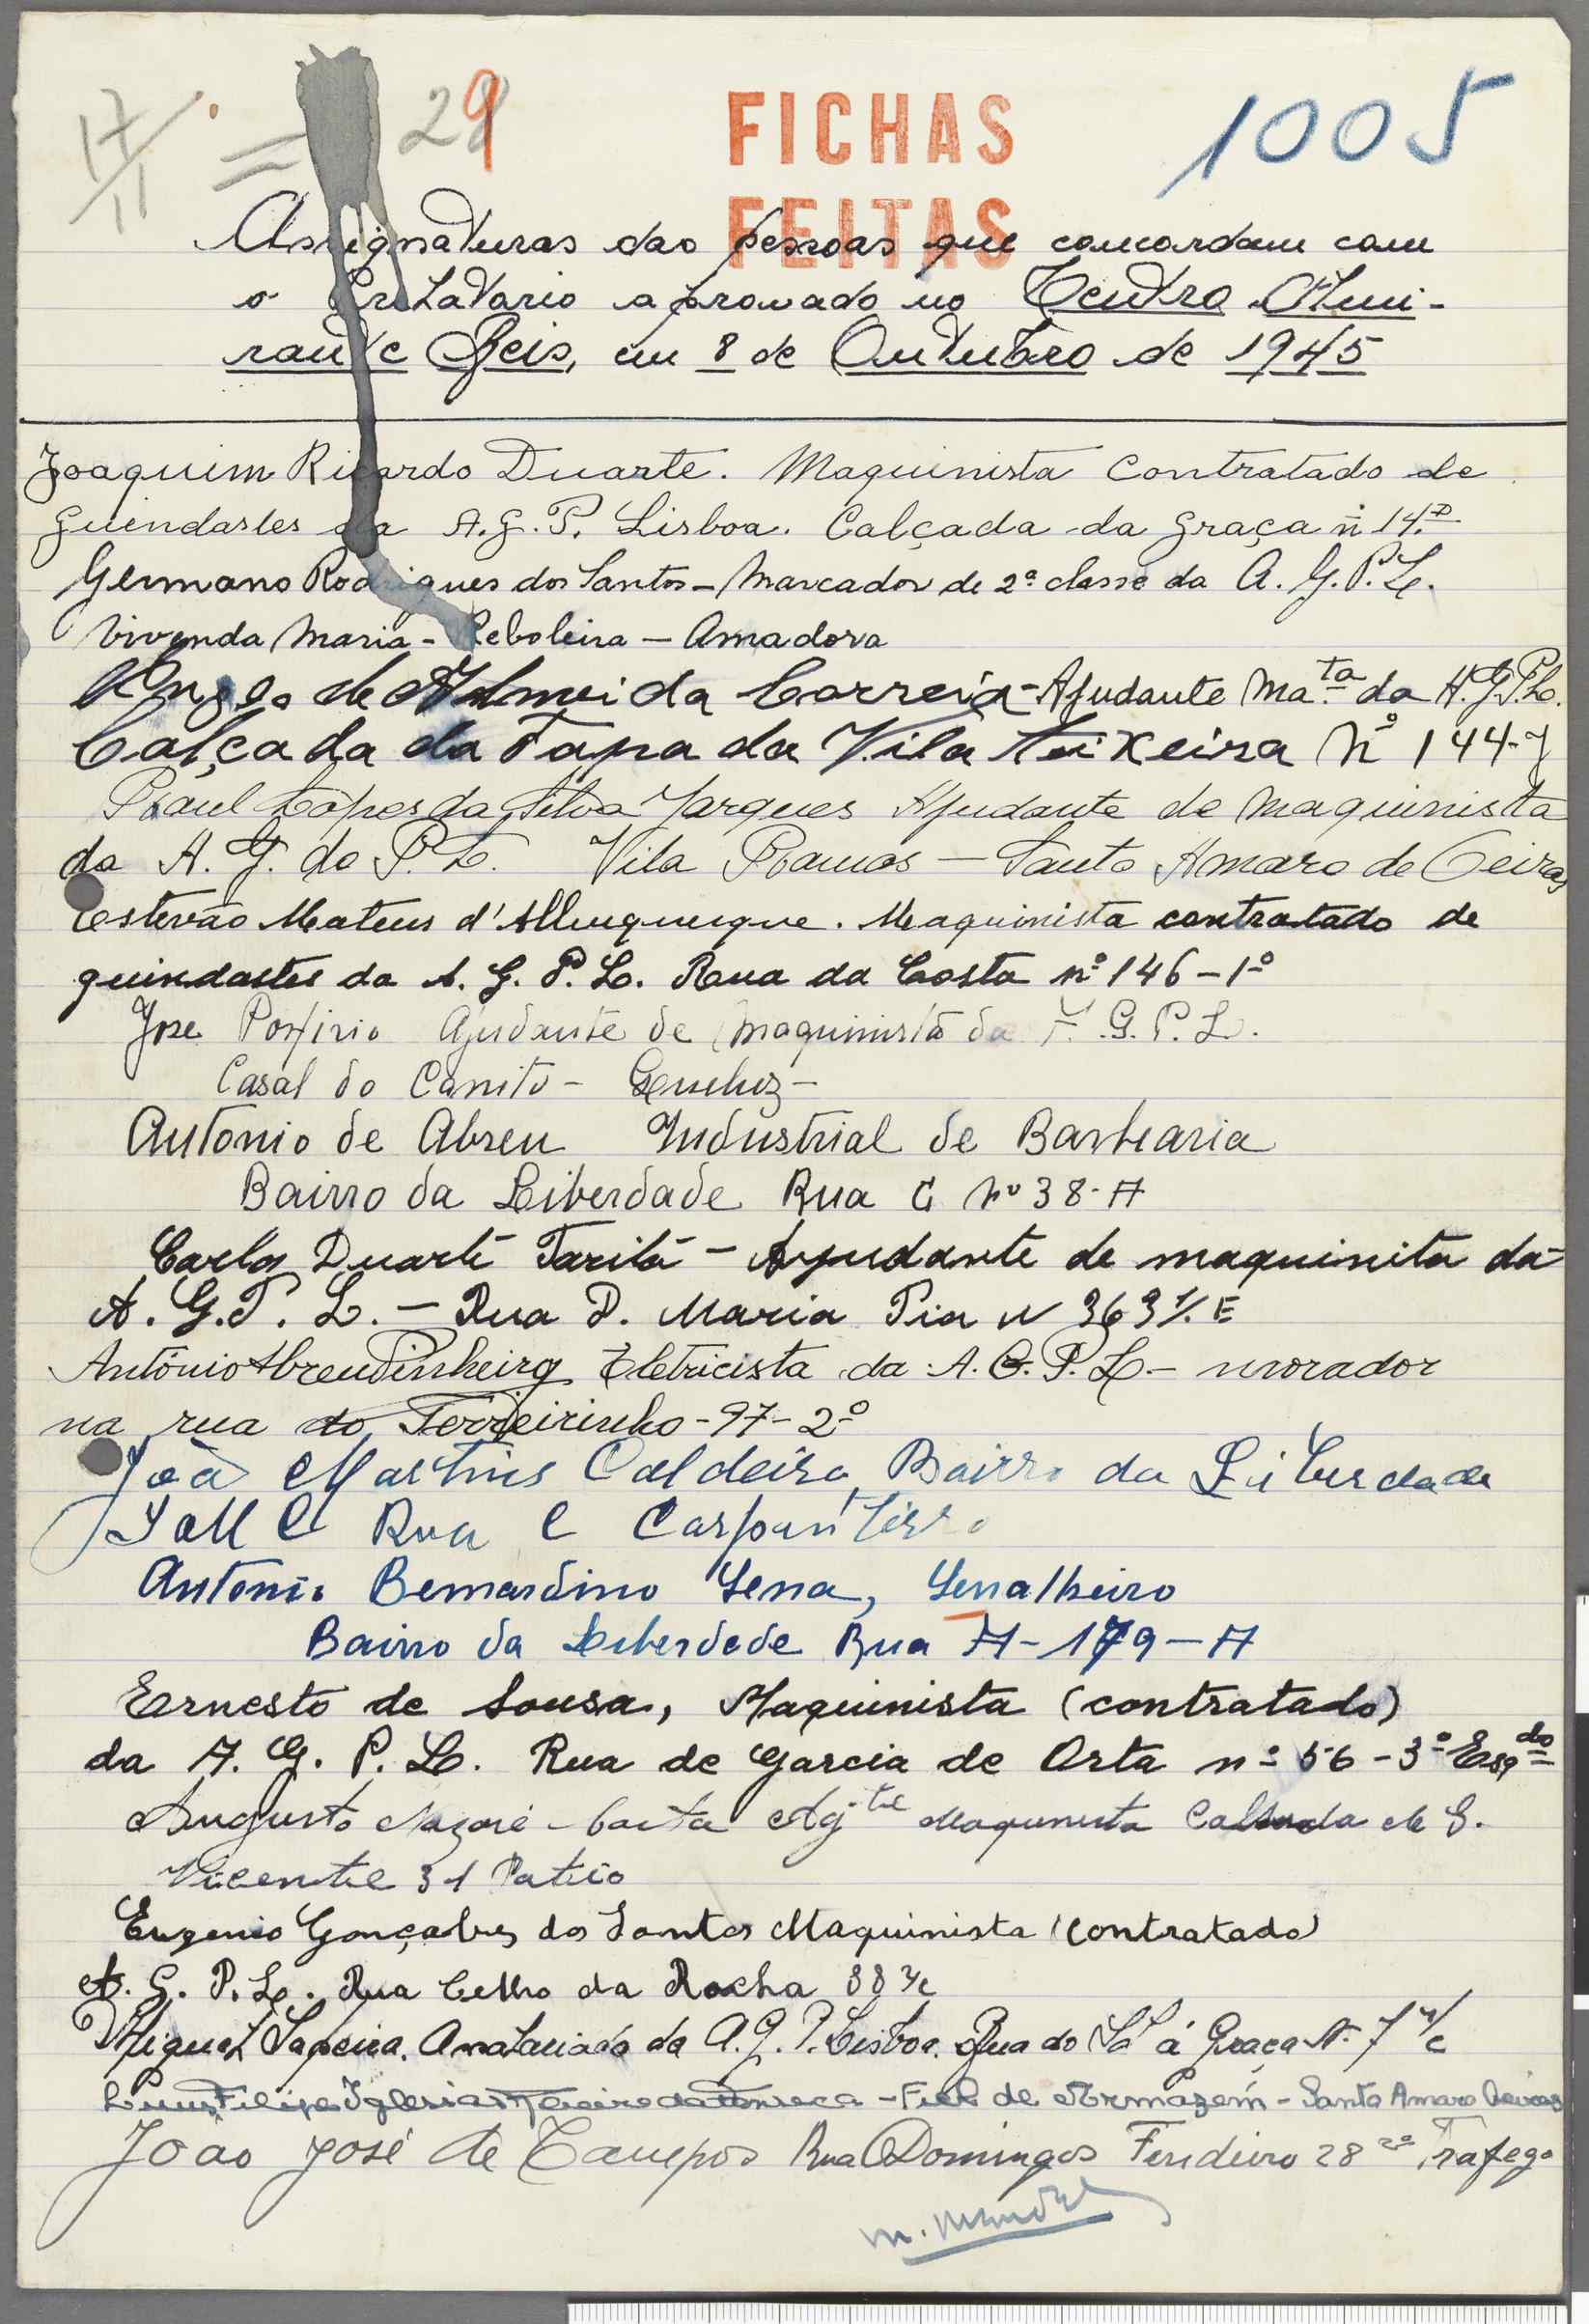 17/11 = 29
FICHAS
FEITAS
1005
Assignaturas das pessoas que concordam com
o aprovado no Centro Almi-
rante Reis, em 8 de Outubro de 1945
Joaquim Ricardo Duarte. Maquinista Contratado de
guindastes da A.G.P. Lisboa. Calçada da Graça nº 14.D
Germano Rodrigues dos Santos - Marcador de 2ª classe da A. G. P. L.
Vivenda Maria - Reboleira - Amadora
de Almeida Correia - Ajudante Ma.ta da A.G.P.L.
Calçada da Tapa da Vila Teixeira Nº 144-
Raul Lopes da Silva Marques Ajudante de Maquinista
da A. G. do P. L. Vila Ramos - Santo Amaro de Oeiras
Estevão Mateus d'Albuquerque. Maquinista contratado de
guindastes da A. G. P. L. Rua da Costa nº 146-1º
Jose Porfirio Ajudante de Maquinista da A. G. P. L.
Casal do Canito -
Antonio de Abreu Industrial de Barbearia
Bairro da Liberdade Rua C Nº 38-A
Carlos Duarte - Ajudante de maquinita da
A. G. P. L. - Rua D. Maria Pia N 363 1/. E
António Abreu Pinheiro Eletricista da A. G. P. L. - morador
na rua do Terreirinho - 97 - 2º
Joã Martins Caldeira Bairro da Liberdade
Rua C
Antonio Bernardino Sena, Serralheiro
Bairro da Liberdade Rua A-179-A
Ernesto de Sousa, Maquinista (contratado)
da A. G. P. L. Rua de Garcia de Orta nº 56-3º Esqdo
Augusto Nazaré Costa Ajte Maquinista Calsada de S.
Vicente 31 Patio
Eugenio Gonçalves dos Santos Maquinista (Contratado)
A. G. P. L. Rua Celho da Rocha 88 r/c
Miguel da A. G. P. Lisboa. Rua do Sol á Graça N. 7 r/c
Luiz Filipe Iglesias da Fonseca - Fiel de Armazem - Santo Amaro Oeiras
João José de Campos Rua Domingos 28 Trafego
M. Mendes